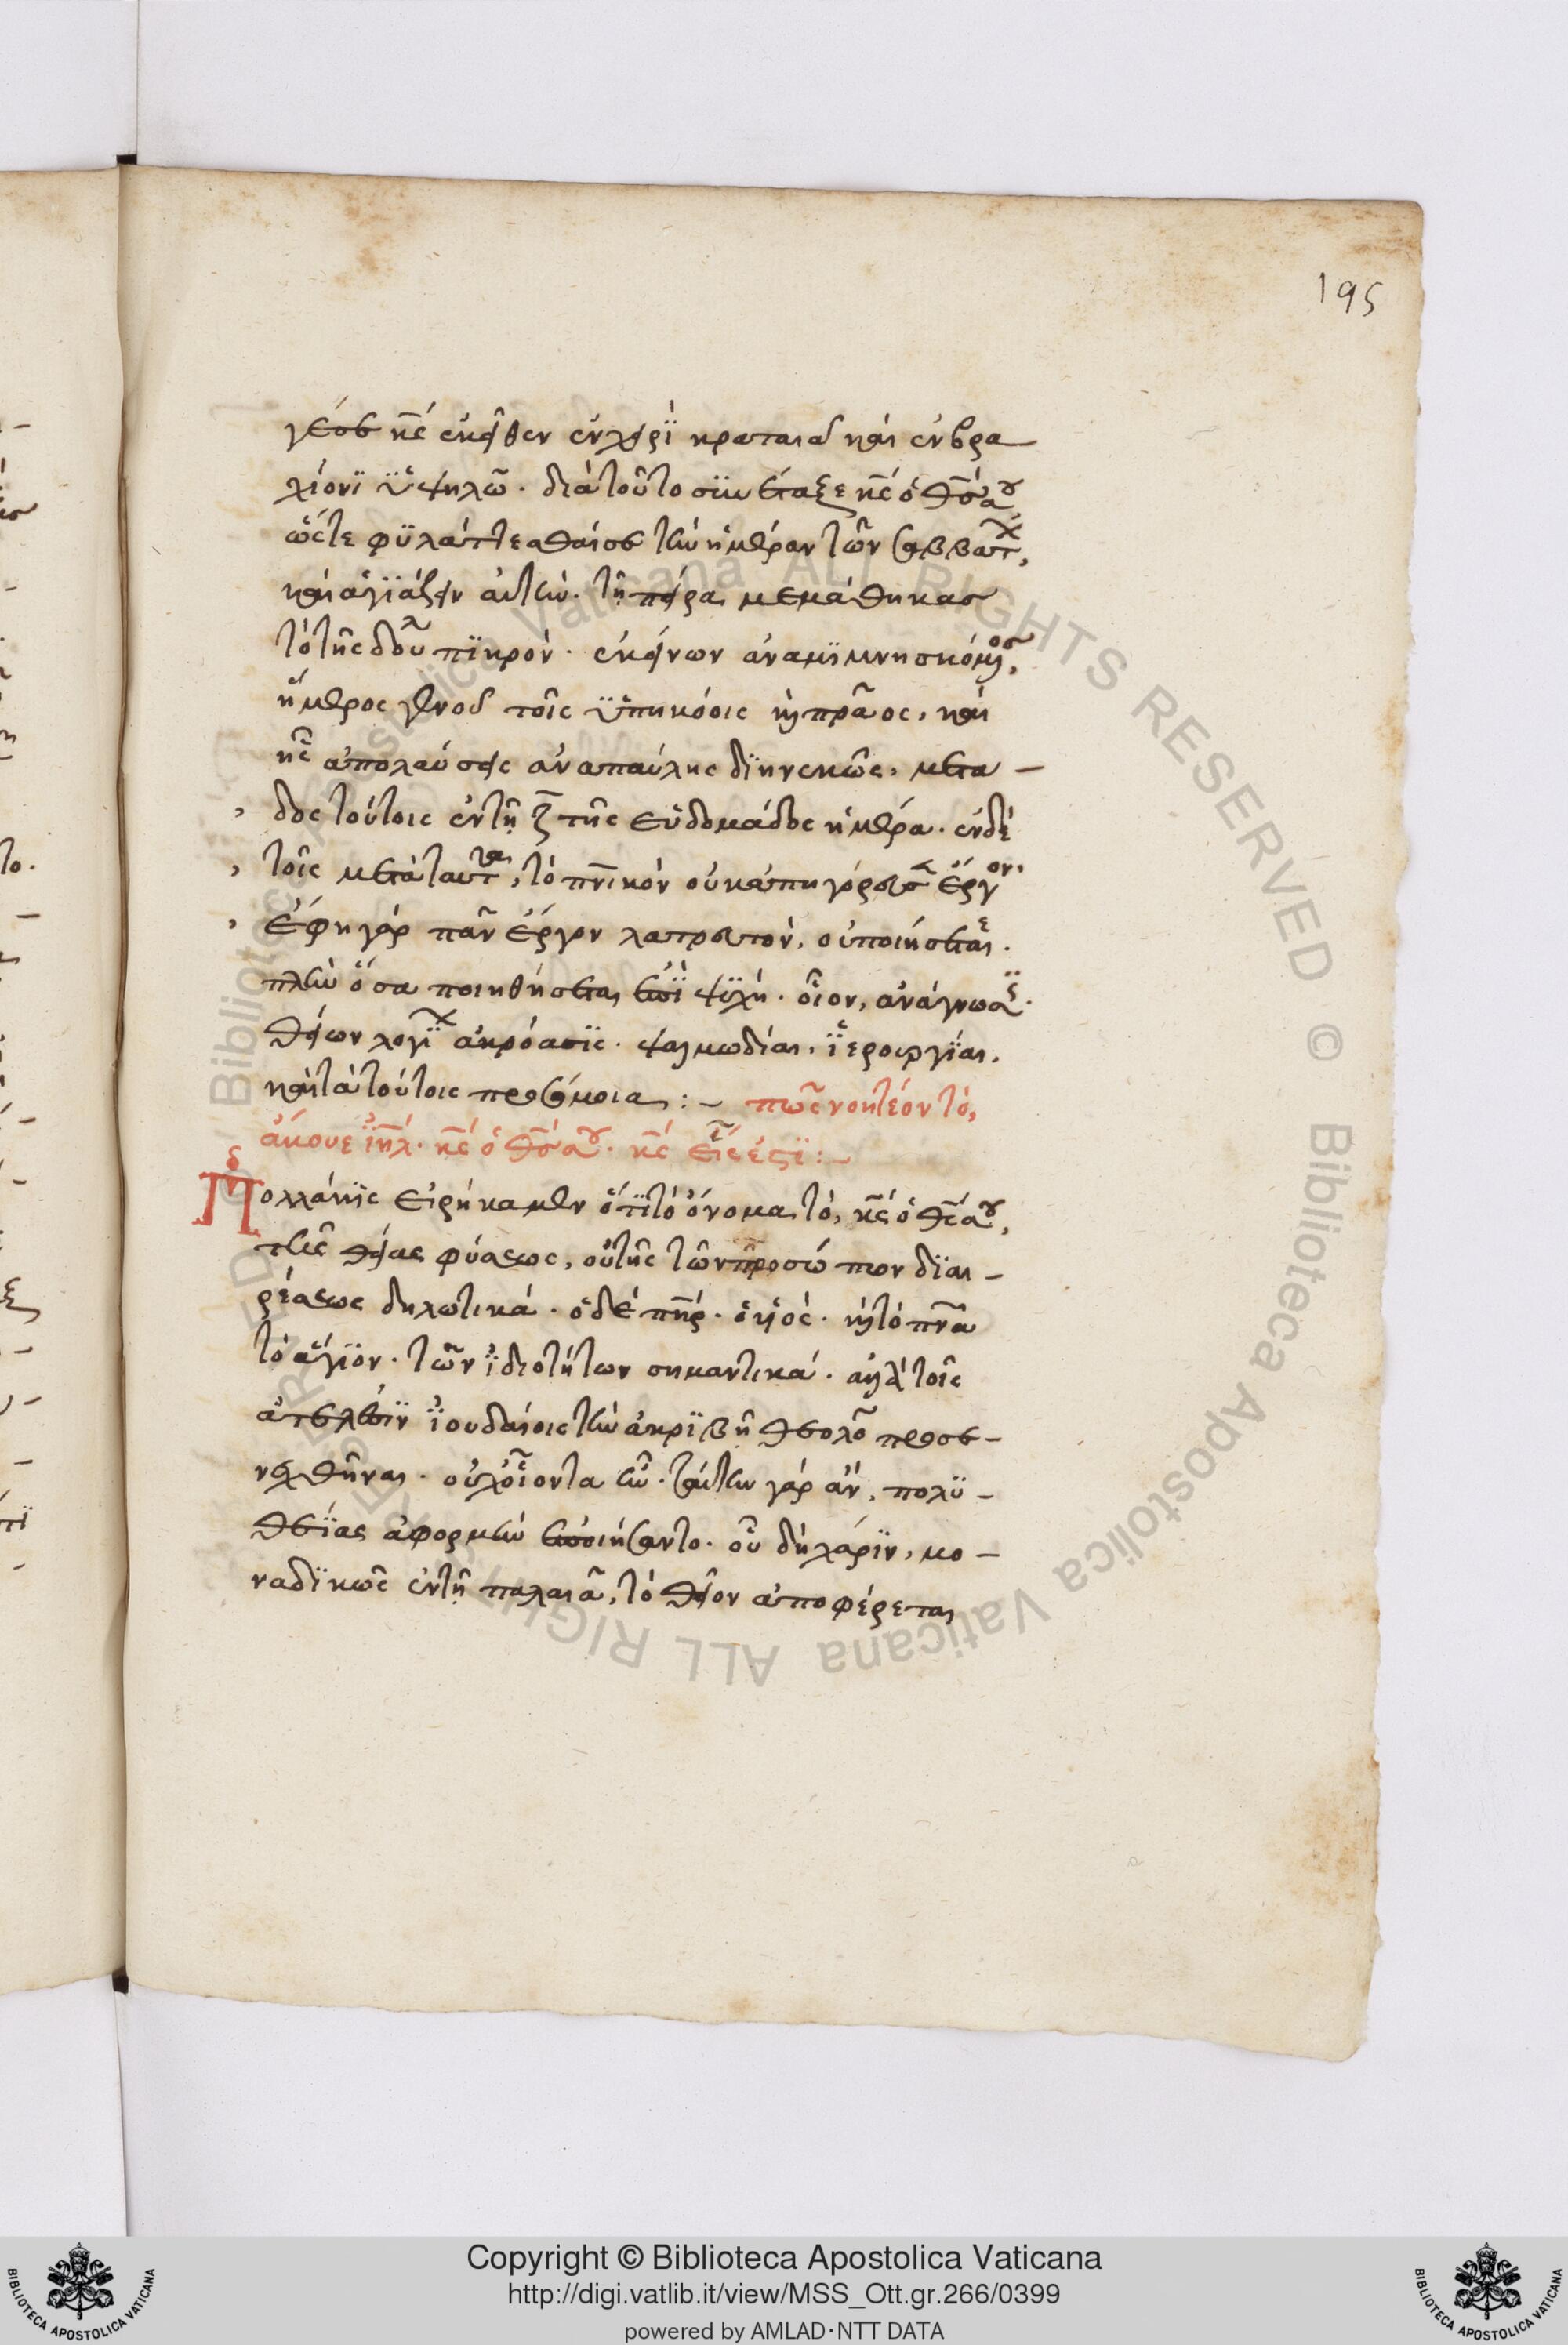 195
γέ σε κ̅ς̅ ἐκεῖθεν ἐν χειρὶ κραταιᾶ καὶ ἐν βρα
χίονϊ ϋψηλῶ· διὰ τοῦτο συνέταξε κ̅ς̅ ὁ θ̅ς̅ σου
ὥςτε φϋλάττεσθαί σε τὴν ἡμέραν τῶν σαββάτ,
καὶ ἁγϊάζειν αὐτήν· τῆ πείρα μεμάθηκας
τὸ τῆς δουλ πϊκρόν· ἐκείνων ἀναμϊμνησκόμενος,
ἥμερος γενοῦ τοῖς ϋπηκόοις καὶ πρᾶος, καὶ
ἧς ἀπολαύσεις ἀναπαύλης δϊηνεκῶς, μετα
δος τούτοις ἐν τῆ ζ̅ τῆς εὐδομάδος ἡμέρα· ἐν δὲ
τοῖς μετὰ ταῦτα, τὸ π̅ν̅ικὸν οὐκ ἀπηγόρευσεν ἔργον·
ἔφη γὰρ πᾶν ἔργον λατρευτὸν, οὐ ποιήσεται·
πλὴν ὅσα ποιηθήσεται ἐπὶ ψϋχῆ· οἷον, ἀνάγνωσις·
θείων λογϊ ἀκρόασϊς· ψαλμωδίαι, ϊερουργίαι,
καὶ τὰ τούτοις προσόμοια :– πῶς νοητέον τὸ,
ἄκουε ι̅η̅λ̅· κ̅ς̅ ὁ θ̅ς̅ σου· κ̅ς̅ εἷς ἐστϊ :–
Πολλάκϊς εἰρήκαμεν ὅτϊ τὸ ὄνομα τὸ, κ̅ς̅ ὁ θ̅ς̅ σου,
τῆς θείας φύσεως, οὐ τῆς τῶν προσώπων δϊαι
ρέσεως δηλωτικά· ὁ δὲ π̅η̅ρ̅· ὁ υἱός· καὶ τὸ π̅ν̅α̅
τὸ ἅγϊον· τῶν ϊδιοτήτων σημαντικά· ἀλλὰ τοῖς
ἀτελέσϊν ϊουδαίοις τὴν ἀκρϊβῆ θεολο προσε
νεχθῆναι· οὐχ οἷόν τε ἦν· ταύτην γὰρ ἂν, πολϋ
θεϊας ἀφορμὴν ἐποιήσαντο· οὗ δὴ χάρϊν, μο
ναδϊκῶς ἐν τῆ παλαιᾶ, τὸ θεῖον ἀποφέρεται
Copyright © Biblioteca Apostolica Vaticana
http://digi.vatlib.it/view/MSS_Ott.gr.266/0399
powered by AMLAD·NTT DATA